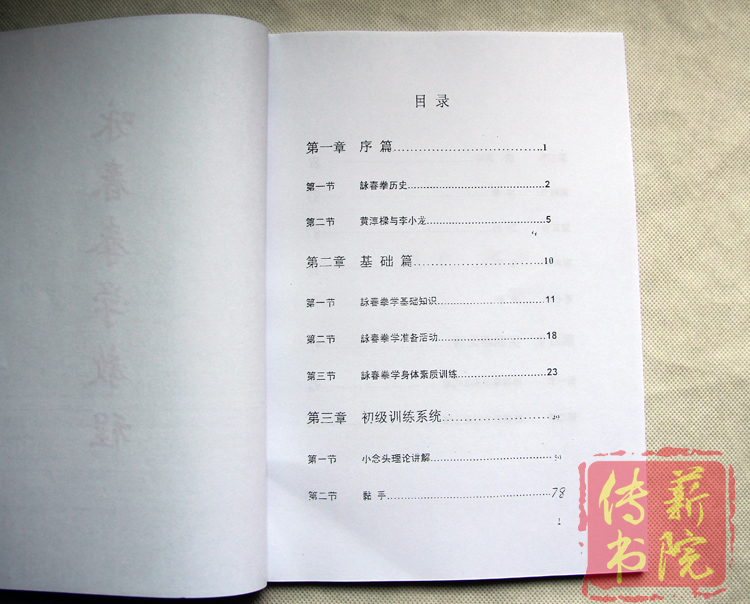 詠春拳学教程
目 录
第一章 序 篇…………………………………1
第一节 詠春拳历史…………………………………2
第二节 黄淳樑与李小龙…………………………………5
第二章 基 础 篇…………………………………10
第一节 詠春拳学基础知识…………………………………11
第二节 詠春拳学准备活动…………………………………18
第三节 詠春拳学身体素质训练…………………………………23
第三章 初级训练系统…………………………………
第一节 小念头理论讲解…………………………………
第二节 黏 手…………………………………78
1
薪
传
书院